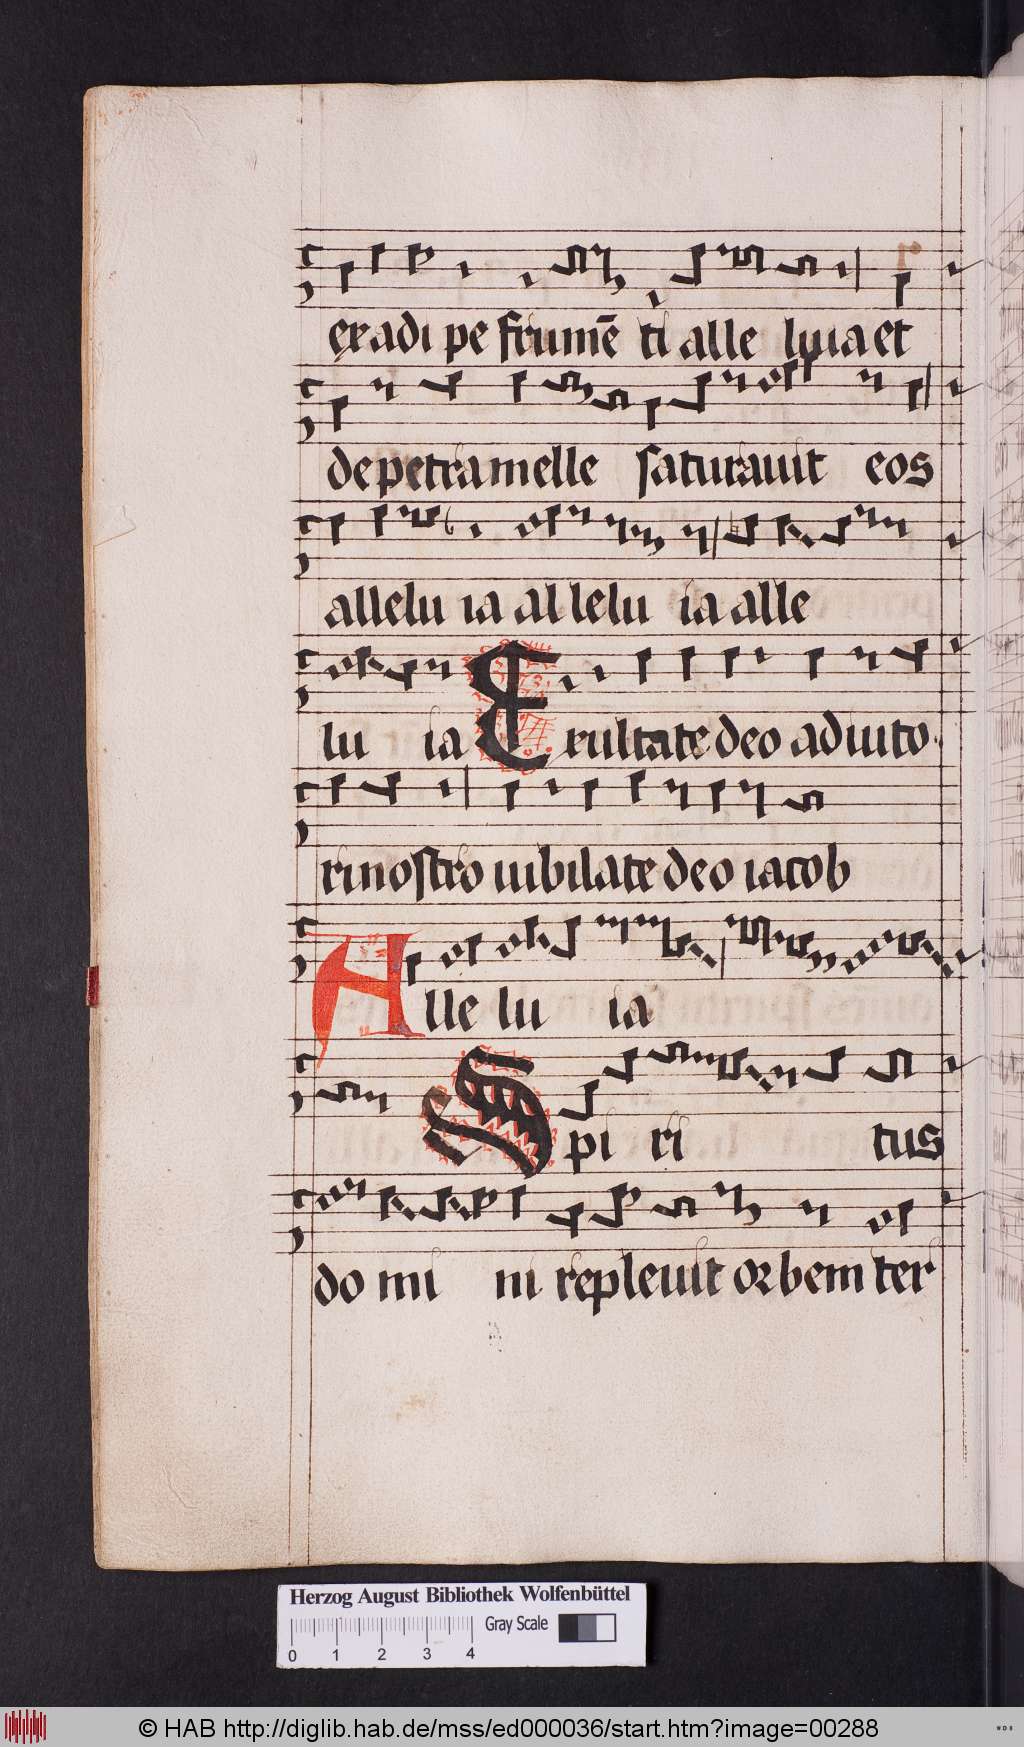 ex adi pe frumē ti alle luia et
de petra melle saturauit eos
allelu ia al lelu ia alle
lu ia Exultate deo adiuto
ri nostro iubilate deo iacob
Alle lu ia
Spi ri tus
do mi ni repleuit orbem ter
Herzog August Bibliothek Wolfenbüttel
Gray Scale
0 1 2 3 4
© HAB http://diglib.hab.de/mss/ed000036/start.htm?image=00288